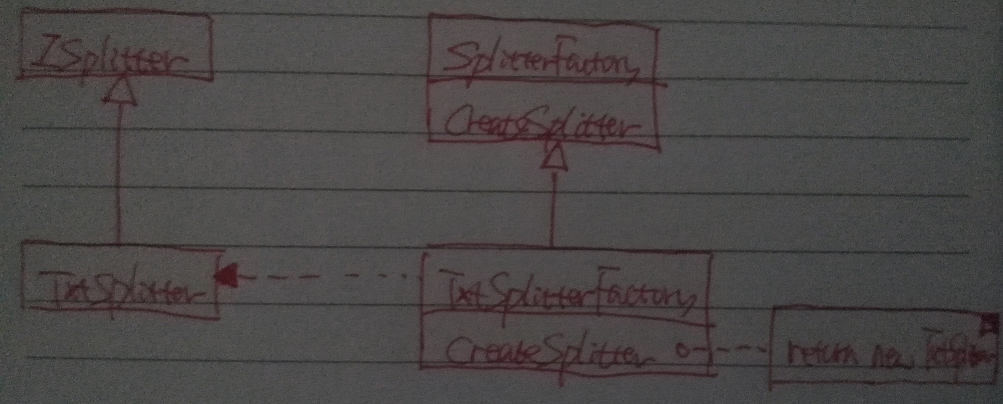 ISplitter
SplitterFactory
CreateSplitter
TxtSplitter
TxtSplitterFactory
CreateSplitter
return new TxtSplitter